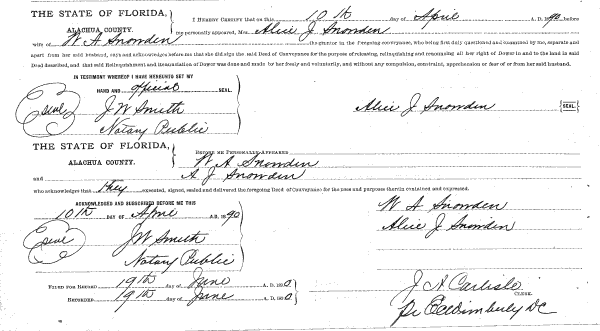 THE STATE OF FLORIDA,
ALACHUA COUNTY.
I HEREBY CERTIFY that on this 10th day of April A. D. 1890 before
me personally appeared, Mrs. Alice J Snowden
wife of W A Snowden the grantor in the foregoing conveyance, who being first duly questioned and examined by me, separate and
apart from her said husband, says and acknowledges before me that she did sign the said Deed of Conveyance for the purpose of releasing, relinquishing and renouncing all her right of Dower in and to the land in said
Deed described, and that said Relinquishment and Renunciation of Dower was done and made by her freely and voluntarily, and without any compulsion, constraint, apprehension or fear of or from her said husband.
IN TESTIMONY WHEREOF I HAVE HEREUNTO SET MY
HAND AND official SEAL.
Seal
J W Smith
Notary Public
Alice J Snowden SEAL.
THE STATE OF FLORIDA,
ALACHUA COUNTY.
BEFORE ME PERSONALLY APPEARED
W A Snowden
and A J Snowden
who acknowledges that they executed, signed, sealed and delivered the foregoing Deed of Conveyance for the uses and purposes therein contained and expressed.
ACKNOWLEDGED AND SUBSCRIBED BEFORE ME THIS
10th DAY OF April A. D. 1890
Seal
J W Smith
Notary Public
W A Snowden
Alice J Snowden
FILED FOR RECORD 19th day of June A. D. 1890
RECORDED 19th day of June A. D. 1890
J A Carlisle
CLERK.
Pr E C Wimberly DC